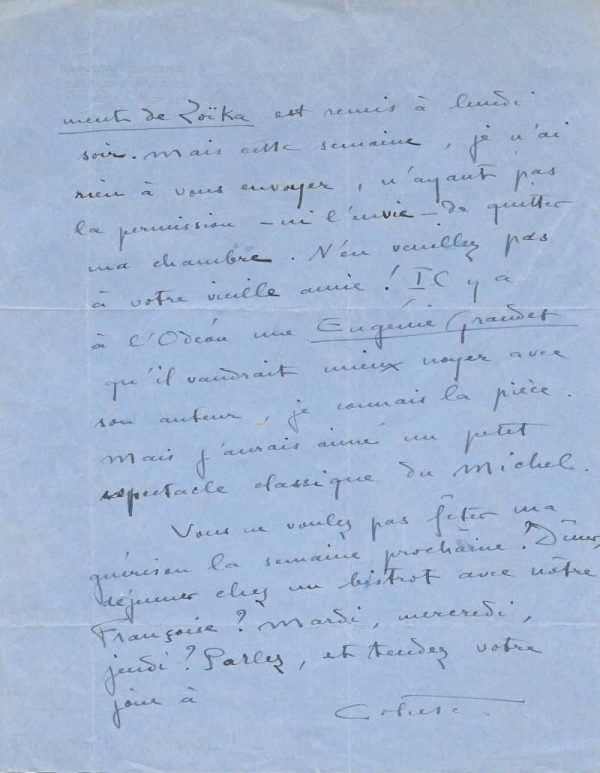 ment de Zoïka est remis à lundi
soir. Mais cette semaine, je n'ai
rien à vous envoyer, n'ayant pas
la permission – ni l'envie – de quitter
ma chambre. N'en veuillez pas
à votre vieille amie ! Il y a
à l'Odéon une Eugénie Grandet
qu'il vaudrait mieux noyer avec
son auteur, je connais la pièce.
Mais j'aurais aimé un petit
spectacle classique du Michel.
Vous ne voulez pas fêter ma
guérison la semaine prochaine ? Dîner,
déjeuner chez un bistrot avec nôtre
Françoise ? Mardi, mercredi,
jeudi ? Parlez, et tendez votre
joue à
Colette